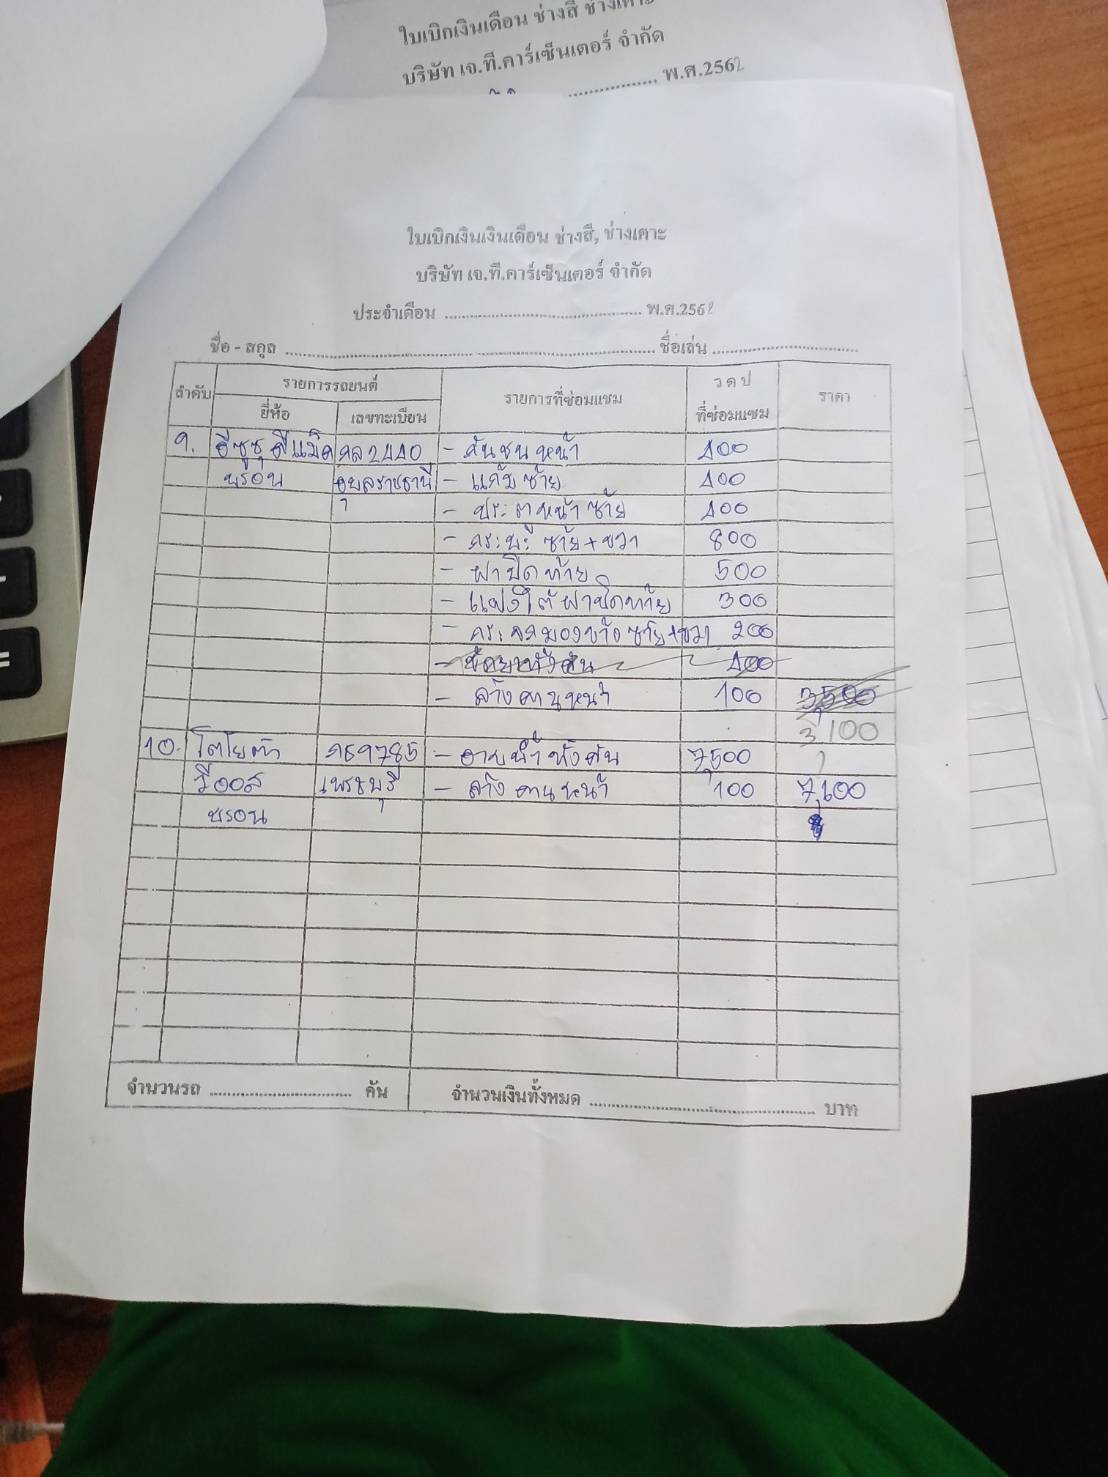 ใบเบิกเงินเดือน ช่างสี ช่างเคาะ
บริษัท เจ.ที.คาร์เซ็นเตอร์ จำกัด
พ.ศ.2562
ใบเบิกเงินเงินเดือน ช่างสี, ช่างเคาะ
บริษัท เจ.ที.คาร์เซ็นเตอร์ จำกัด
ประจำเดือน ........................................ พ.ศ.2562
ชื่อ - สกุล ........................................ ชื่อเล่น ..............................
ลำดับ รายการรถยนต์ รายการที่ซ่อมแซม ว ด ป ราคา
ยี่ห้อ เลขทะเบียน ที่ซ่อมแซม
9. อีซูซุ ดีแม็ค 2440 - กันชนหน้า 400
บรอน อุบลราชธานี - แก้มซ้าย 400
- ประตูหน้าซ้าย 400
- กระบะซ้าย+ขวา 800
- ฝาปิดท้าย 500
- แผงใต้ฝาปิดท้าย 300
- กระจกมองข้างซ้าย+ขวา 200
400
- ล้างคานหน้า 100 3,500
3,100
10. โตโยต้า 9785 - อาบน้ำทั้งคัน 7,500
วีออส เพรชบุรี - ล้างคานหน้า 100 7,600
บรอน
จำนวนรถ .............................. คัน จำนวนเงินทั้งหมด .................................................. บาท